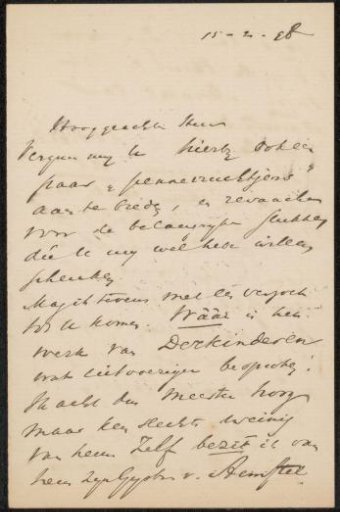 15-2-98
Hooggeachte Heer
Vergun mij U hierbij ook een
paar "pennevruchtjens"
aan te bieden, en revanche
voor de belangrijke stukken
die U mij wel hebt willen
schenken
Mag ik tevens met een verzoek
tot U komen. Wáár is het
werk van Derkinderen
wat uitvoeriger besproken?
Ik acht den meester hoog
maar ken slechts weinig
van hem. Zelf bezit ik van
hem zijn Gysbr. v. Aemstel